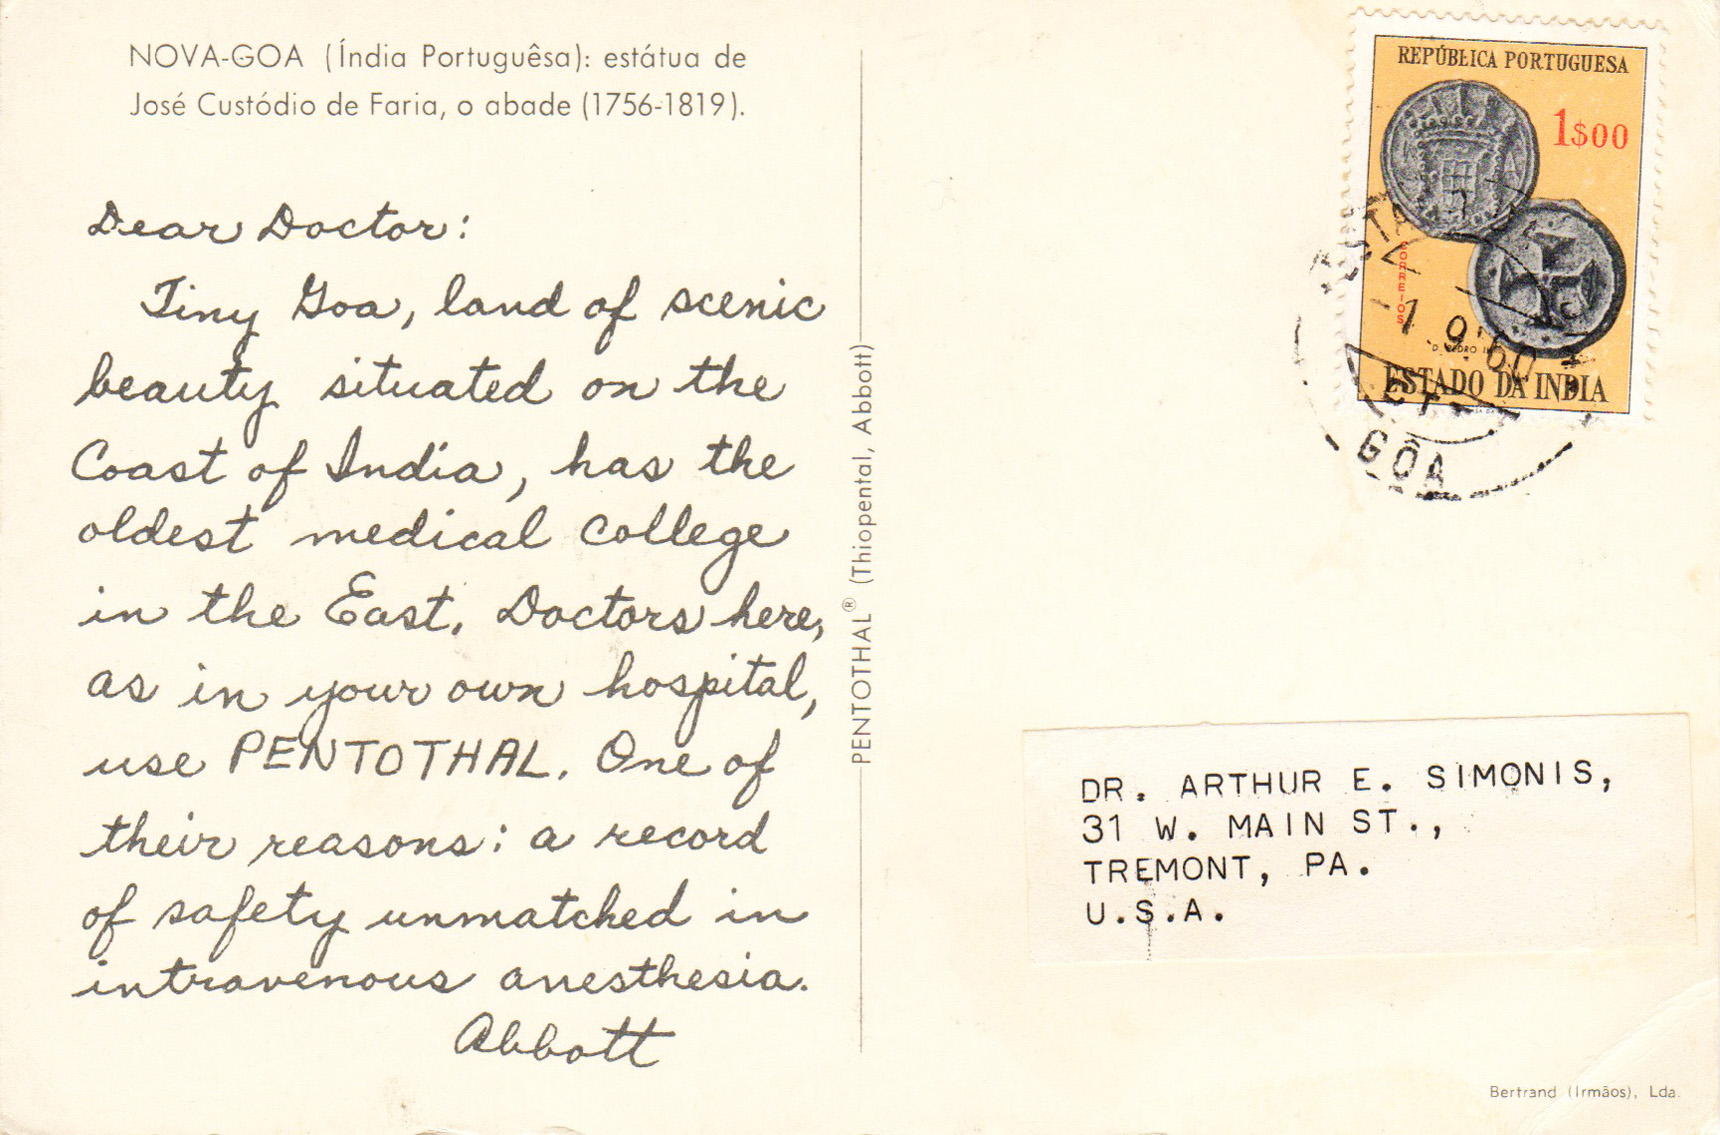 NOVA-GOA (Índia Portuguêsa): estátua de
José Custódio de Faria, o abade (1756-1819).
Dear Doctor:
Tiny Goa, land of scenic
beauty situated on the
Coast of India, has the
oldest medical college
in the East. Doctors here,
as in your own hospital,
use PENTOTHAL. One of
their reasons: a record
of safety unmatched in
intravenous anesthesia.
Abbott
PENTOTHAL® (Thiopental, Abbott)
REPÚBLICA PORTUGUESA
1$00
CORREIOS
ESTADO DA INDIA
-1.9.60
GÔA
DR. ARTHUR E. SIMONIS,
31 W. MAIN ST.,
TREMONT, PA.
U.S.A.
Bertrand (Irmãos), Lda.